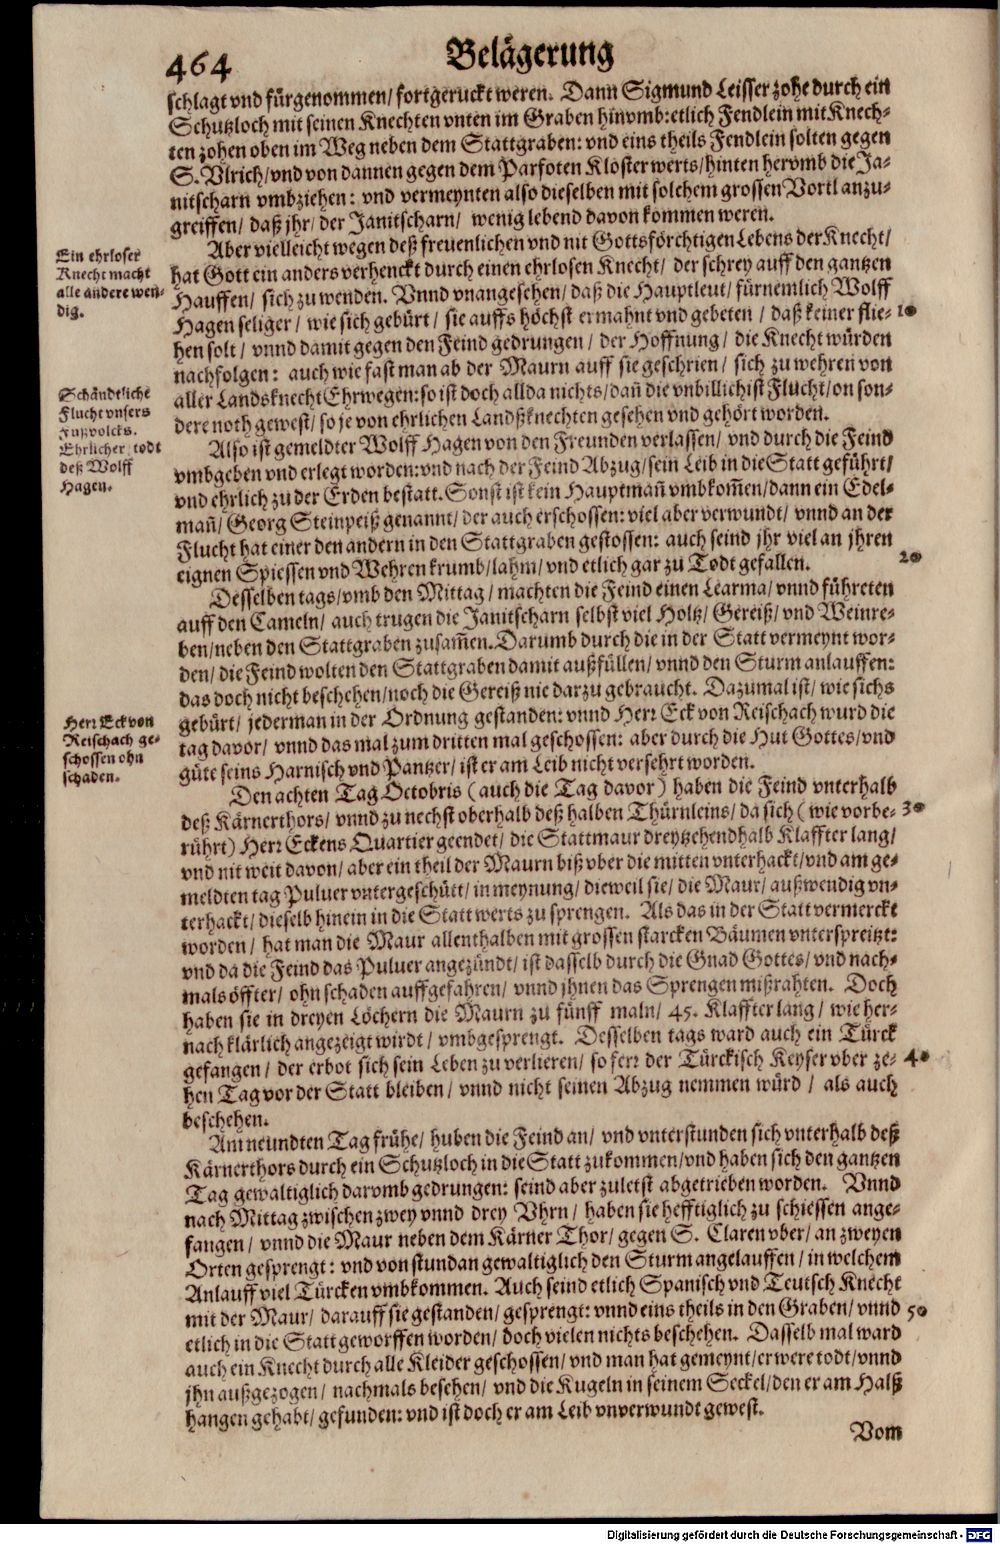 464
Belägerung
schlagt vnd fürgenommen/ fortgeruckt weren. Dann Sigmund Leisser zohe durch ein
Schutzloch mit seinen Knechten vnten im Graben hinvmb: etlich Fendlein mit Knech-
ten zohen oben im Weg neben dem Stattgraben: vnd eins theils Fendlein solten gegen
S. Vlrich/ vnd von dannen gegen dem Parfoten Kloster werts/ hinten hervmb die Ja-
nitscharn vmbziehen: vnd vermeynten also dieselben mit solchem grossen Vortl anzu-
greiffen/ daß jhr/ der Janitscharn/ wenig lebend davon kommen weren.
Aber vielleicht wegen deß freuenlichen vnd nit Gottsförchtigen Lebens der Knecht/
hat Gott ein anders verhenckt durch einen ehrlosen Knecht/ der schrey auff den gantzen
Hauffen/ sich zu wenden. Vnnd vnangesehen/ daß die Hauptleut/ fürnemlich Wolff
Hagen seliger/ wie sich gebürt/ sie auffs höchst ermahnt vnd gebeten/ daß keiner flie-
hen solt/ vnnd damit gegen den Feind gedrungen/ der Hoffnung/ die Knecht würden
nachfolgen: auch wie fast man ab der Maurn auff sie geschrien/ sich zu wehren von
aller Landsknecht Ehr wegen: so ist doch allda nichts/ dañ die vnbillichist Flucht/ on son-
dere noth gewest/ so je von ehrlichen Landßknechten gesehen vnd gehört worden.
Also ist gemeldter Wolff Hagen von den Freunden verlassen/ vnd durch die Feind
vmbgeben vnd erlegt worden: vnd nach der Feind Abzug/ sein Leib in die Statt geführt/
vnd ehrlich zu der Erden bestatt. Sonst ist kein Hauptmañ vmbkom̃en/ dann ein Edel-
mañ/ Georg Steinpeiß genannt/ der auch erschossen: viel aber verwundt/ vnnd an der
Flucht hat einer den andern in den Stattgraben gestossen: auch seind jhr viel an jhren
eignen Spiessen vnd Wehren krumb/ lahm/ vnd etlich gar zu Todt gefallen.
Desselben tags/ vmb den Mittag/ machten die Feind einen Learma/ vnnd führeten
auff den Cameln/ auch trugen die Janitscharn selbst viel Holtz/ Gereiß/ vnd Weinre-
ben/ neben den Stattgraben zusam̃en. Darumb durch die in der Statt vermeynt wor-
den/ die Feind wolten den Stattgraben damit außfüllen/ vnnd den Sturm anlauffen:
das doch nicht beschehen/ noch die Gereiß nie darzu gebraucht. Dazumal ist/ wie sichs
gebürt/ jederman in der Ordnung gestanden: vnnd Herr Eck von Reischach wurd die
tag davor/ vnnd das mal zum dritten mal geschossen: aber durch die Hut Gottes/ vnd
güte seins Harnisch vnd Pantzer/ ist er am Leib nicht versehrt worden.
Den achten Tag Octobris (auch die Tag davor) haben die Feind vnterhalb
deß Kärnerthors/ vnnd zu nechst oberhalb deß halben Thürnleins/ da sich (wie vorbe-
rührt) Herr Eckens Quartier geendet/ die Stattmaur dreytzehendhalb Klaffter lang/
vnd nit weit davon/ aber ein theil der Maurn biß vber die mitten vnterhackt/ vnd am ge-
meldten tag Puluer vntergeschütt/ in meynung/ dieweil sie/ die Maur/ außwendig vn-
terhackt/ dieselb hinein in die Statt werts zu sprengen. Als das in der Statt vermerckt
worden/ hat man die Maur allenthalben mit grossen starcken Bäumen vnterspreitzt:
vnd da die Feind das Puluer angezündt/ ist dasselb durch die Gnad Gottes/ vnd nach-
mals öffter/ ohn schaden auffgefahren/ vnnd jhnen das Sprengen mißrahten. Doch
haben sie in dreyen Löchern die Maurn zu fünff maln/ 45. Klaffter lang/ wie her-
nach klärlich angezeigt wirdt/ vmbgesprengt. Desselben tags ward auch ein Türck
gefangen/ der erbot sich sein Leben zu verlieren/ so ferr der Türckisch Keyser vber ze-
hen Tag vor der Statt bleiben/ vnnd nicht seinen Abzug nemmen würd/ als auch
beschehen.
Am neundten Tag frühe/ huben die Feind an/ vnd vnterstunden sich vnterhalb deß
Kärnerthors durch ein Schutzloch in die Statt zukommen/ vnd haben sich den gantzen
Tag gewaltiglich darvmb gedrungen: seind aber zuletst abgetrieben worden. Vnnd
nach Mittag zwischen zwey vnnd drey Vhrn/ haben sie hefftiglich zu schiessen ange-
fangen/ vnnd die Maur neben dem Kärner Thor/ gegen S. Claren vber/ an zweyen
Orten gesprengt: vnd von stundan gewaltiglich den Sturm angelauffen/ in welchem
Anlauff viel Türcken vmbkommen. Auch seind etlich Spanisch vnd Teutsch Knecht
mit der Maur/ darauff sie gestanden/ gesprengt: vnnd eins theils in den Graben/ vnnd
etlich in die Statt geworffen worden/ doch vielen nichts beschehen. Dasselb mal ward
auch ein Knecht durch alle Kleider geschossen/ vnd man hat gemeynt/ er were todt/ vnnd
jhn außgezogen/ nachmals besehen/ vnd die Kugeln in seinem Seckel/ den er am Halß
hangen gehabt/ gefunden: vnd ist doch er am Leib vnverwundt gewest.
Vom
Ein ehrloser
Knecht macht
alle andere wen-
dig.
Schändtliche
Flucht vnsers
Fußvolcks.
Ehrlicher todt
deß Wolff
Hagen.
Herr Eck von
Reischach ge-
schossen ohn
schaden.
10
20
30
40
50
Digitalisierung gefördert durch die Deutsche Forschungsgemeinschaft - DFG